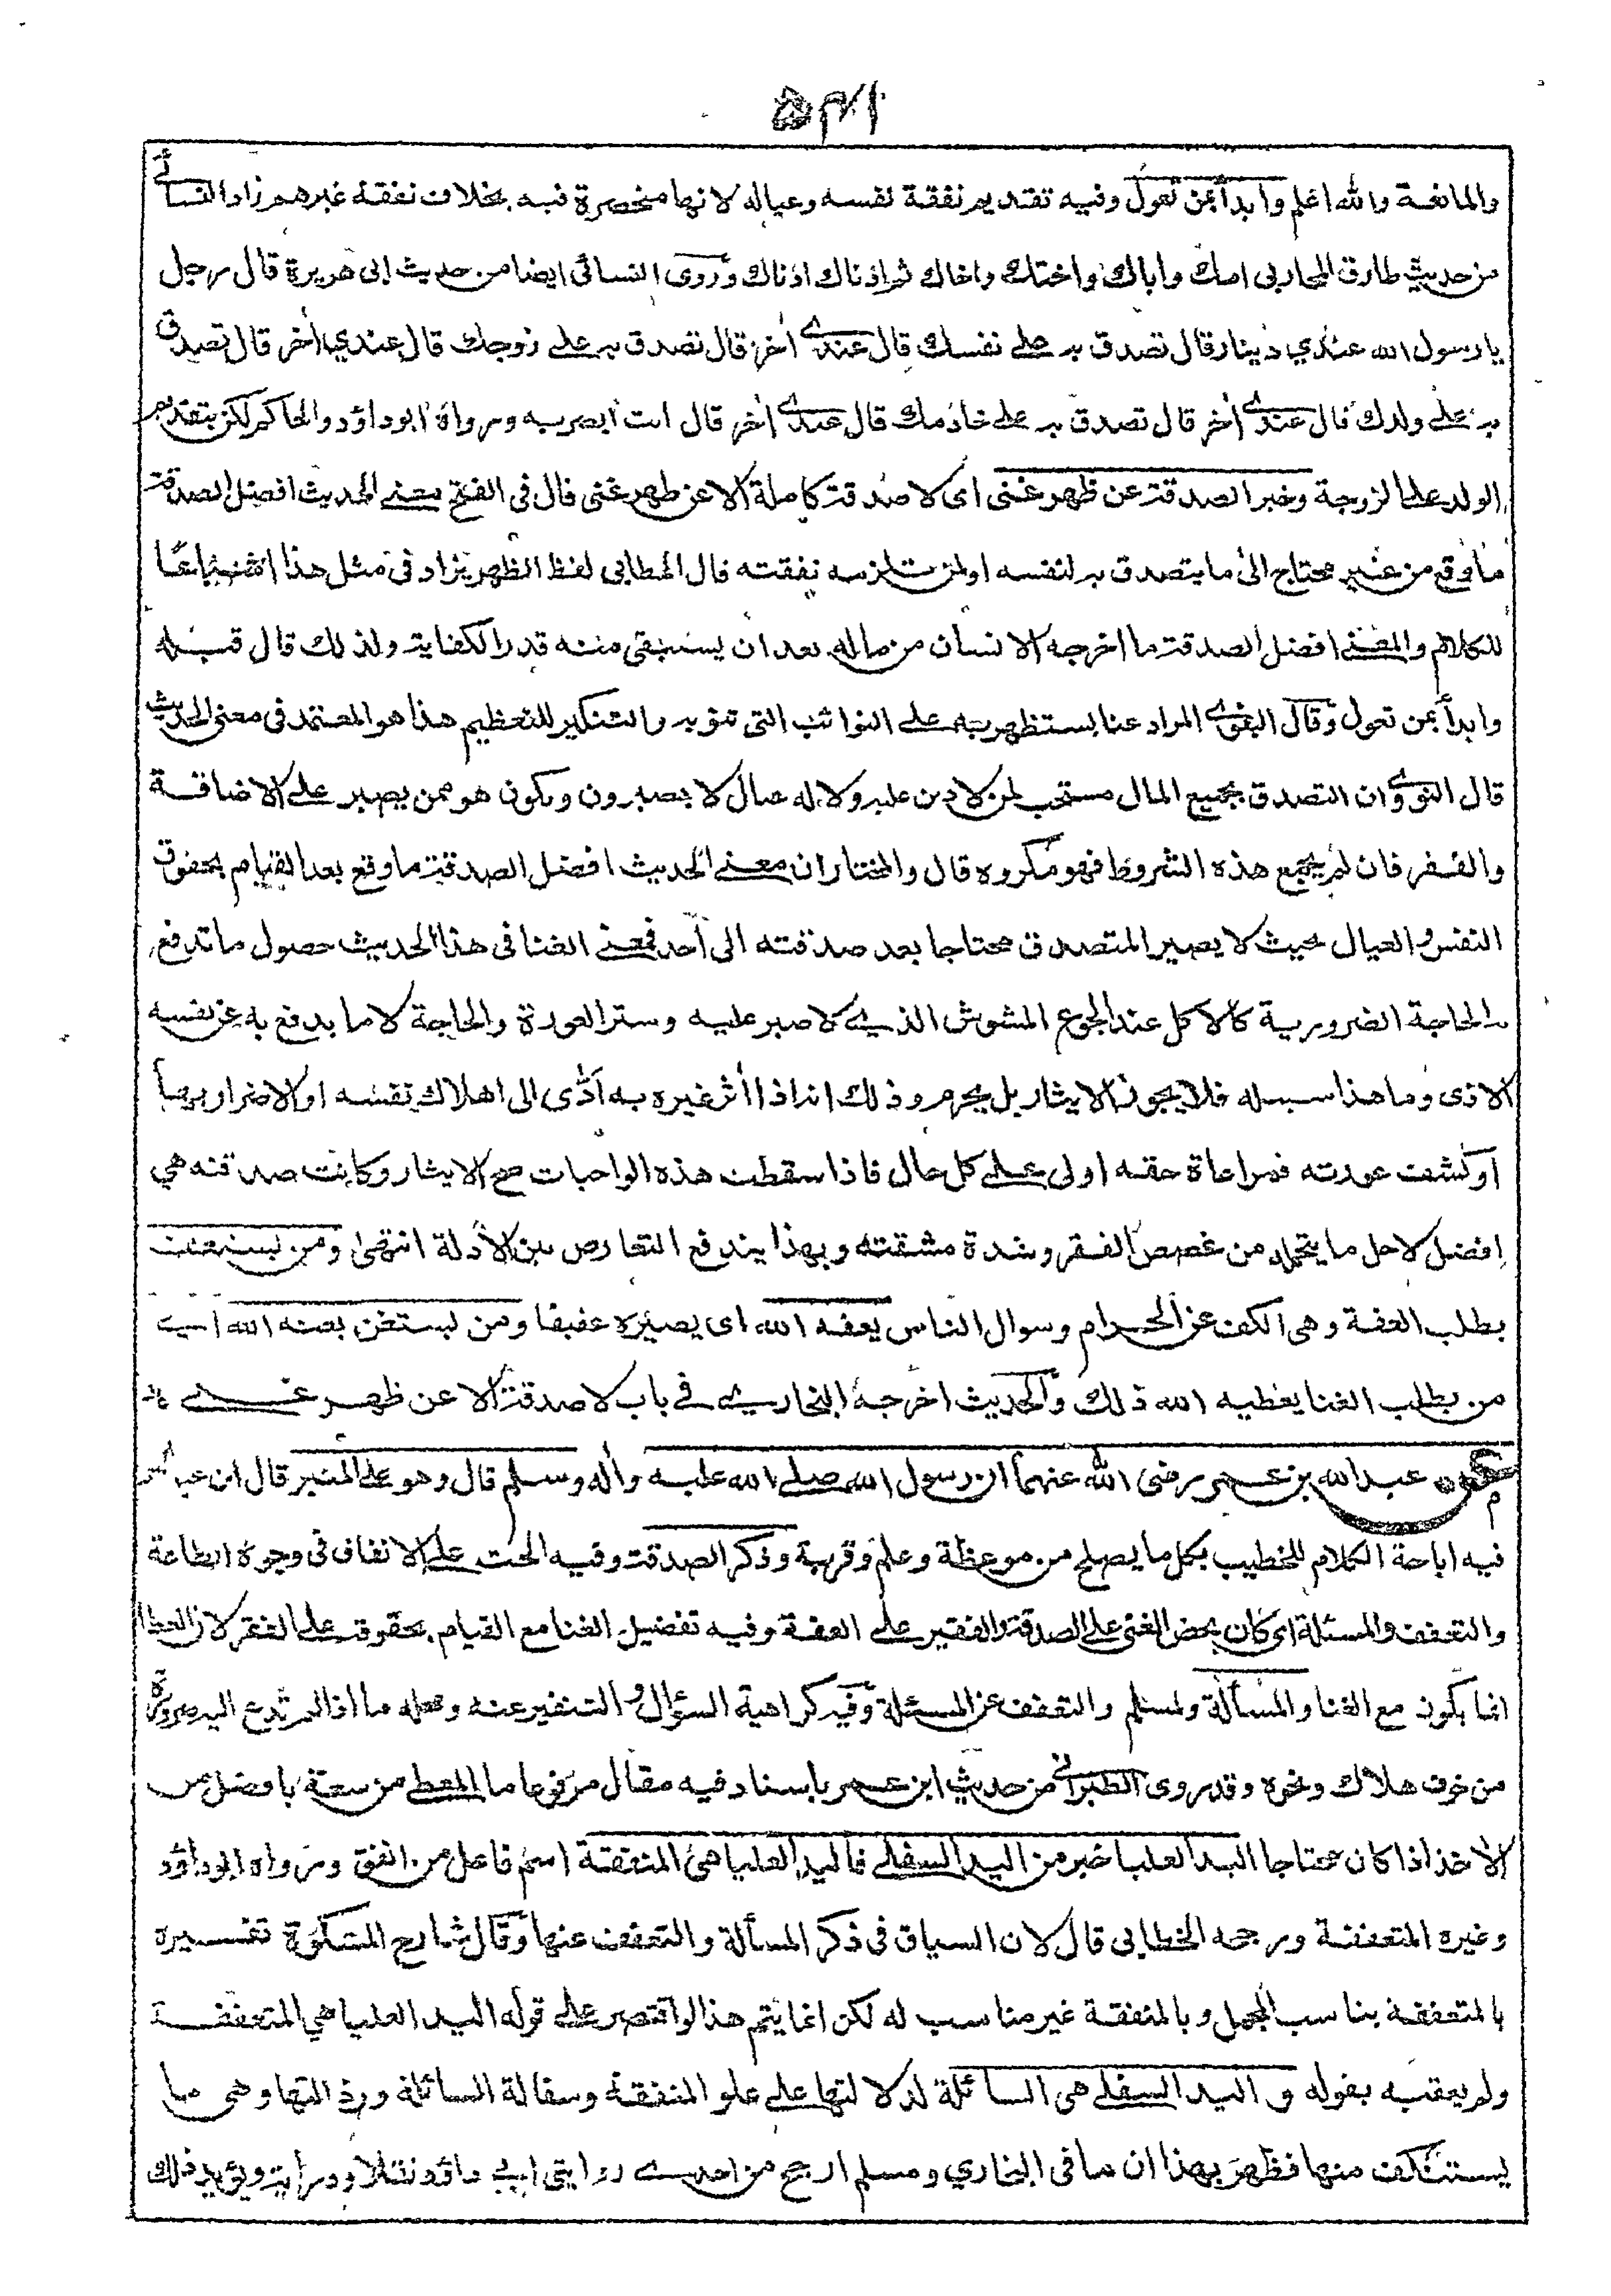 ٥٣١
والمانعة والله اعلم وابدأ بمن تعول وفيه تقديم نفقة نفسه وعياله لانها منحصرة فيه بخلاف نفقة غيرهم زاد النسائے
من حديث طارق المحاربي امك واباك واختك واخاك ثم ادناك ادناك وروى النسائى ايضا من حديث ابى هريرة قال رجل
يا رسول الله عندي دينار قال تصدق به على نفسك قال عندے اخر قال تصدق به على زوجك قال عندي اخر قال تصدق
به على ولدك قال عندے اخر قال تصدق به على خادمك قال عندے اخر قال انت ابصر به ورواه ابوداؤد والحاكم لكن بتقديم
الولد على الزوجة وخير الصدقة عن ظهر غنى اى لا صدقة كاملة الا عن ظهر غنى قال فى الفتح معنے الحديث افضل الصدقة
ما وقع من غير محتاج الى ما يتصدق به لنفسه او لمن تلزمه نفقته قال الخطابى لفظ الظهر يزاد فى مثل هذا اشباعا
للكلام والمعنے افضل الصدقة ما اخرجه الانسان من ماله بعد ان يستبقى منه قدر الكفاية ولذلك قال قبله
وابدأ بمن تعول وقال البغوے المراد غنا يستظهر به على النوائب التى تنوبه والتنكير للتعظيم هذا هو المعتمد فى معنى الحديث
قال النووے وان التصدق بجميع المال مستحب لمن لا دين عليه ولا له عيال لا يصبرون ويكون هو ممن يصبر على الاضاقة
والفقر فان لم يجمع هذه الشروط فهو مكروه قال والمختار ان معنے الحديث افضل الصدقة ما وقع بعد القيام بحقوق
النفس والعيال بحيث لا يصير المتصدق محتاجا بعد صدقته الى أحد فمعنے الغنا فى هذا الحديث حصول ما تدفع
به الحاجة الضرورية كالاكل عند الجوع المشوش الذے لا صبر عليه وستر العورة والحاجة لا ما يدفع به عن نفسه
الاذى وما هذا سبيله فلا يجوز الايثار بل يحرم وذلك انه اذا أثر غيره به أدّى الى اهلاك نفسه او الاضرار بها
أو كشف عورته فمراعاة حقه اولى على كل حال فاذا سقطت هذه الواجبات صح الايثار وكانت صدقته هي
افضل لاجل ما يتحمله من غصص الفقر وشدة مشقته وبهذا يندفع التعارض بين الأدلة انتهى ومن يستعفف
بطلب العفة وهى الكف عن الحرام وسوال الناس يعفه الله اى يصيره عفيفا ومن يستغن يغنه الله اے
من يطلب الغنا يعطيه الله ذلك والحديث اخرجه البخارے فے باب لا صدقة الا عن ظهر غنے
عن عبد الله بن عمر رضى الله عنهما ان رسول الله صلے الله عليه واله وسلم قال وهو على المنبر قال ابن عبد البر
فيه اباحة الكلام للخطيب بكل ما يصلح من موعظة وعلم وقربة وذكر الصدقة وفيه الحث على الانفاق فى وجوه الطاعة
والتعفف والمسئلة اى كان يحض الغنى على الصدقة والفقير على العفة وفيه تفضيل الغنا مع القيام بحقوقه على الفقر لان العطا
انما يكون مع الغنا والمسألة ولمسلم والتعفف عن المسئلة وفيه كراهية السؤال والتنفير عنه ومحله ما اذا لم تدع اليه ضرورة
من خوف هلاك ونحوه وقد روى الطبرانى من حديث ابن عمر باسناد فيه مقال مرفوعا ما المعطى من سعة بافضل من
الاخذ اذا كان محتاجا اليد العليا خير من اليد السفلے فاليد العليا هى المنفقة اسم فاعل من انفق ورواه ابوداؤد
وغيره المتعففة ورجحه الخطابى قال لان السياق فى ذكر المسألة والتعفف عنها وقال شارح المشكوة تفسيره
بالمتعففة يناسب المجمل وبالمنفقة غير مناسب له لكن انما يتم هذا لو اقتصر على قوله اليد العليا هي المتعففة
ولم يعقبه بقوله و اليد السفلے هى السائلة لدلالتها على علو المنفقة وسفالة السائلة ورذالتها وهى مما
يستنكف منها فظهر بهذا ان ما فى البخاري ومسلم ارجح من احدے روايتى ابے داؤد نقلا ودراية ويؤيد ذلك